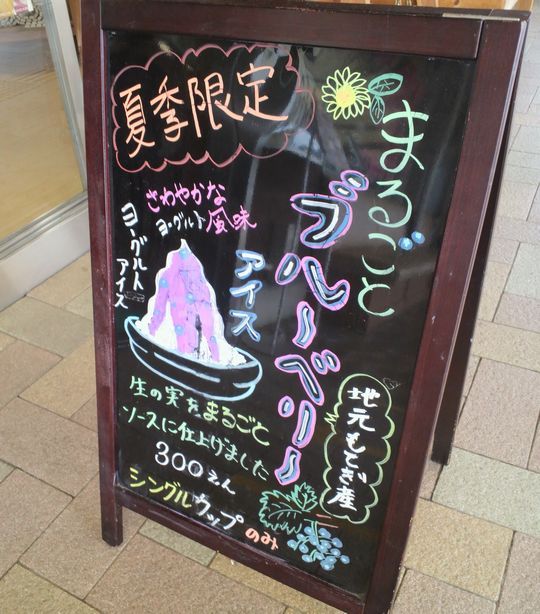 夏季限定
まるごと
ブルーベリー
アイス
さわやかな
ヨーグルト風味
ヨーグルト
アイス
地元もてぎ産
生の実をまるごと
ソースに仕上げました
300えん
シングルウップ
のみ